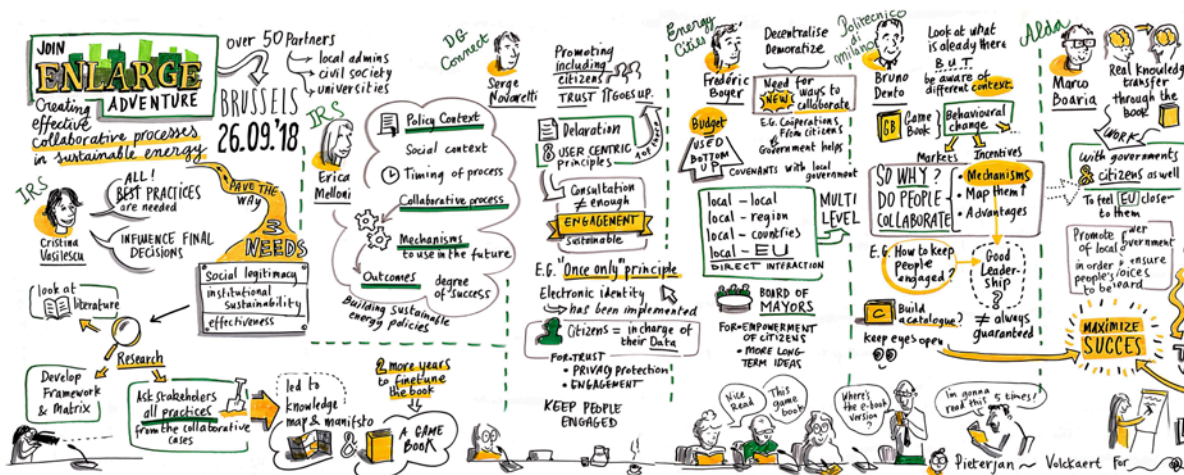 JOIN
ENLARGE
ADVENTURE
Creating
effective
collaborative processes
in sustainable energy
over 50 Partners
local admins
civil society
universities
BRUSSELS
26.09.'18
IRS
Cristina
Vasilescu
ALL!
BEST PRACTICES
are needed
INFLUENCE FINAL
DECISIONS
PAVE THE
WAY
3
NEEDS
Social legitimacy
institutional
sustainability
effectiveness
look at
literature
Research
Develop
Framework
& Matrix
Ask stakeholders
all practices
from the collaborative
cases
led to
knowledge
map & manifsto
&
2 more years
to finetune
the book
A GAME
BOOK
IRS
Erica
Melloni
Policy Context
Social context
Timing of process
Collaborative process
Mechanisms
to use in the future
Outcomes
degree
of success
Building sustainable
energy policies
DG
Connect
Serge
Novaretti
Promoting
including
citizens
TRUST GOES UP.
Delaration
8 USER CENTRIC
principles
Consultation
≠ enough
ENGAGEMENT
Sustainable
E.G. "Once only" principle
Electronic identity
has been implemented
Citizens = in charge of
their Data
FOR TRUST
• PRIVACY protection
• ENGAGEMENT
KEEP PEOPLE
ENGAGED
Energy
Cities
Frédéric
Boyer
Decentralise
Demoratize
Need for
NEW ways to
collaborate
E.G. Cooperations
From citizens
Government helps
Budget
USED
BOTTOM
UP
COVENANTS with local
government
local - local
local - region
local - countries
local - EU
DIRECT INTERACTION
MULTI
LEVEL
BOARD OF
MAYORS
FOR EMPOWERMENT
OF CITIZENS
• MORE LONG
TERM IDEAS
Politecnico
di
Milano
Bruno
Dento
Look at what
is already there
BUT
be aware of
different context.
GB
Game
Book
Behavioural
change
Markets
Incentives
SO WHY?
DO PEOPLE
COLLABORATE
• Mechanisms
• Map them
• Advantages
E.G. How to keep
people
engaged?
Good
Leader-
ship
?
≠ always
guaranteed
C
Build
a catalogue?
keep eyes open
Alda
Marco
Boaria
Real knowledge
transfer
through the
book
WORK
with governments
& citizens as well
To feel EU closer
to them
Promote
of local
in order
people's
to be
MAXIMIZE
SUCCES
Nice
Read
This
game
book
Where's
the e-book
version?
i'm gonna
read this 5 times!
Pieterjan ~ Volckaert For